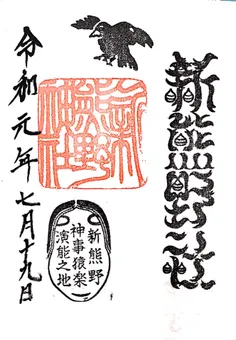 新熊野神社
新熊野
神事猿楽
演能之地
令和元年七月十九日